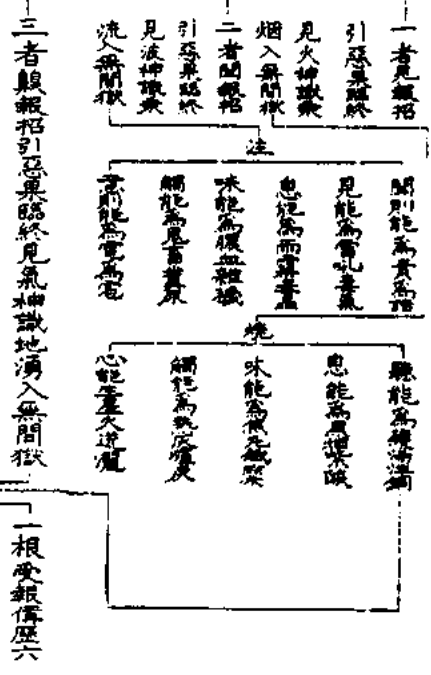 一者見報招
引惡果臨終
見火神識乘
烟入無間獄
二者聞報招
引惡果臨終
見波神識乘
流入無間獄
注
聞則能為責為詰
見能為雷吼毒氣
息能為雨霧毒蠱
味能為膿血雜穢
觸能為鬼畜糞尿
意則能為電為雹
燒
聽能為鑊湯洋銅
息能為黑烟紫燄
味能為焦丸鐵糜
觸能為熱灰爐炭
心能生星火迸灑
三者齅報招引惡果臨終見氣神識地湧入無間獄
一根受報備歷六